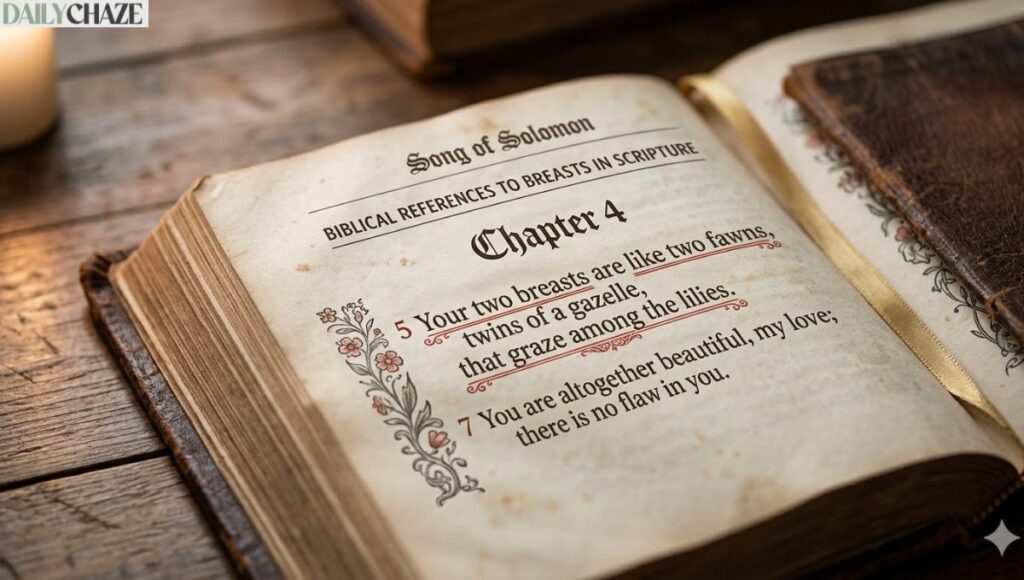 DAILYCHAZE
Song of Solomon
BIBLICAL REFERENCES TO BREASTS IN SCRIPTURE
Chapter 4
5 Your two breasts are like two fawns,
twins of a gazelle,
that graze among the lilies.
7 You are altogether beautiful, my love;
there is no flaw in you.